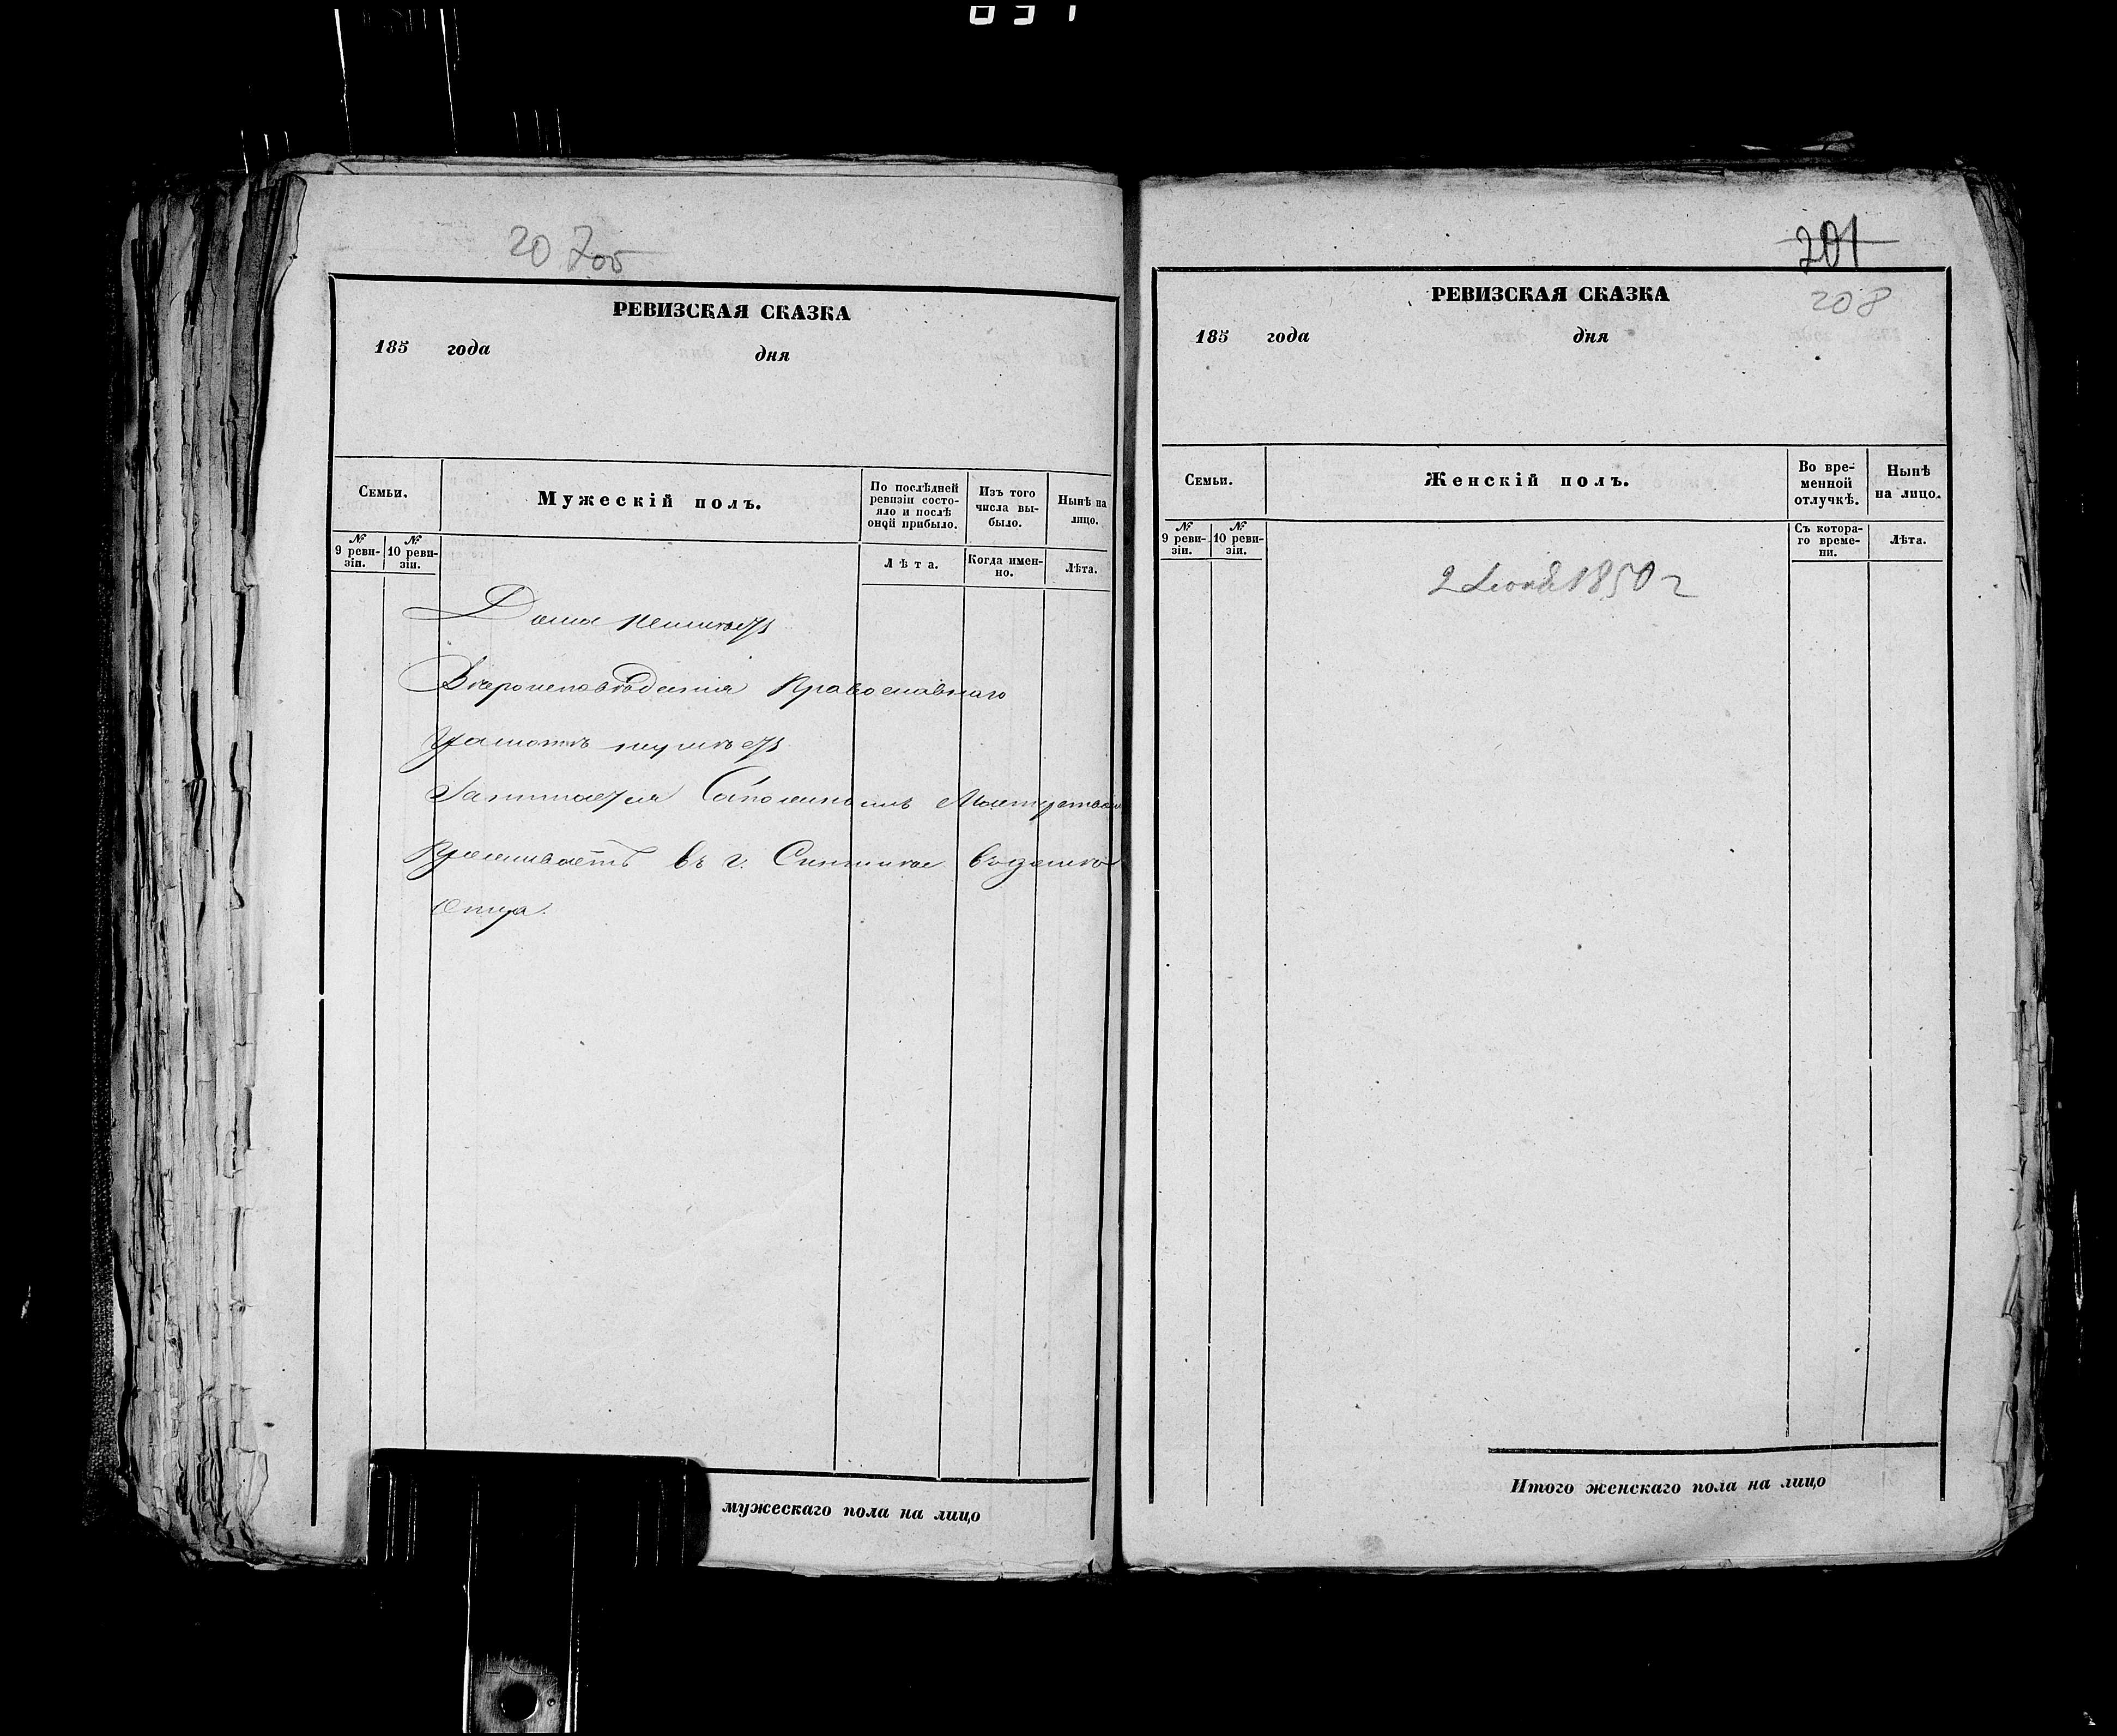 20 7об
РЕВИЗСКАЯ СКАЗКА
185 года дня
Семьи.
Мужескій полъ.
По послѣдней ревизіи состо-
яло и послѣ
оной прибыло.
Изъ того
числа вы-
было.
Нынѣ на
лицо.
№ 9 реви-
зіи.
№ 10 реви-
зіи.
Лѣта.
Когда имен-
но.
Лѣта.
Дома неимѣетъ
Вѣроисповѣданія Православнаго
Грамотѣ неумѣетъ
Занимается Сапожнымъ Мастерством
Проживаетъ въ г.
Отца.
мужескаго пола на лицо
201
208
РЕВИЗСКАЯ СКАЗКА
185 года дня
Семьи.
Женскій полъ.
Во вре-
менной
отлучкѣ.
Нынѣ
на лицо.
№ 9 реви-
зіи.
№ 10 реви-
зіи.
Съ котора-
го време-
ни.
Лѣта.
2 1850 г
Итого женскаго пола на лицо